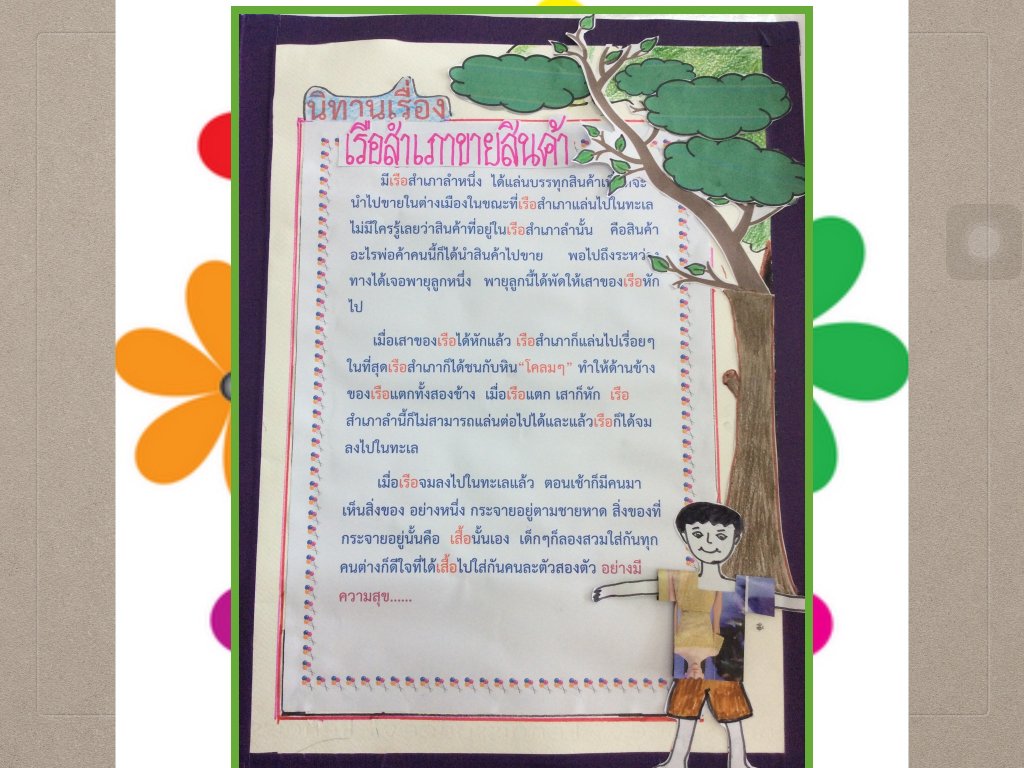 นิทานเรื่อง
เรือสำเภาขายสินค้า
มีเรือสำเภาลำหนึ่ง ได้แล่นบรรทุกสินค้า
นำไปขายในต่างเมืองในขณะที่เรือสำเภาแล่นไปในทะเล
ไม่มีใครรู้เลยว่าสินค้าที่อยู่ในเรือสำเภาลำนั้น คือสินค้า
อะไรพ่อค้าคนนี้ก็ได้นำสินค้าไปขาย พอไปถึงระหว่าง
ทางได้เจอพายุลูกหนึ่ง พายุลูกนี้ได้พัดให้เสาของเรือหัก
ไป
เมื่อเสาของเรือได้หักแล้ว เรือสำเภาก็แล่นไปเรื่อยๆ
ในที่สุดเรือสำเภาก็ได้ชนกับหิน“โคลมๆ” ทำให้ด้านข้าง
ของเรือแตกทั้งสองข้าง เมื่อเรือแตก เสาก็หัก เรือ
สำเภาลำนี้ก็ไม่สามารถแล่นต่อไปได้และแล้วเรือก็ได้จม
ลงไปในทะเล
เมื่อเรือจมลงไปในทะเลแล้ว ตอนเช้าก็มีคนมา
เห็นสิ่งของ อย่างหนึ่ง กระจายอยู่ตามชายหาด สิ่งของที่
กระจายอยู่นั้นคือ เสื้อนั้นเอง เด็กๆก็ลองสวมใส่กันทุก
คนต่างก็ดีใจที่ได้เสื้อไปใส่กันคนละตัวสองตัว อย่างมี
ความสุข......